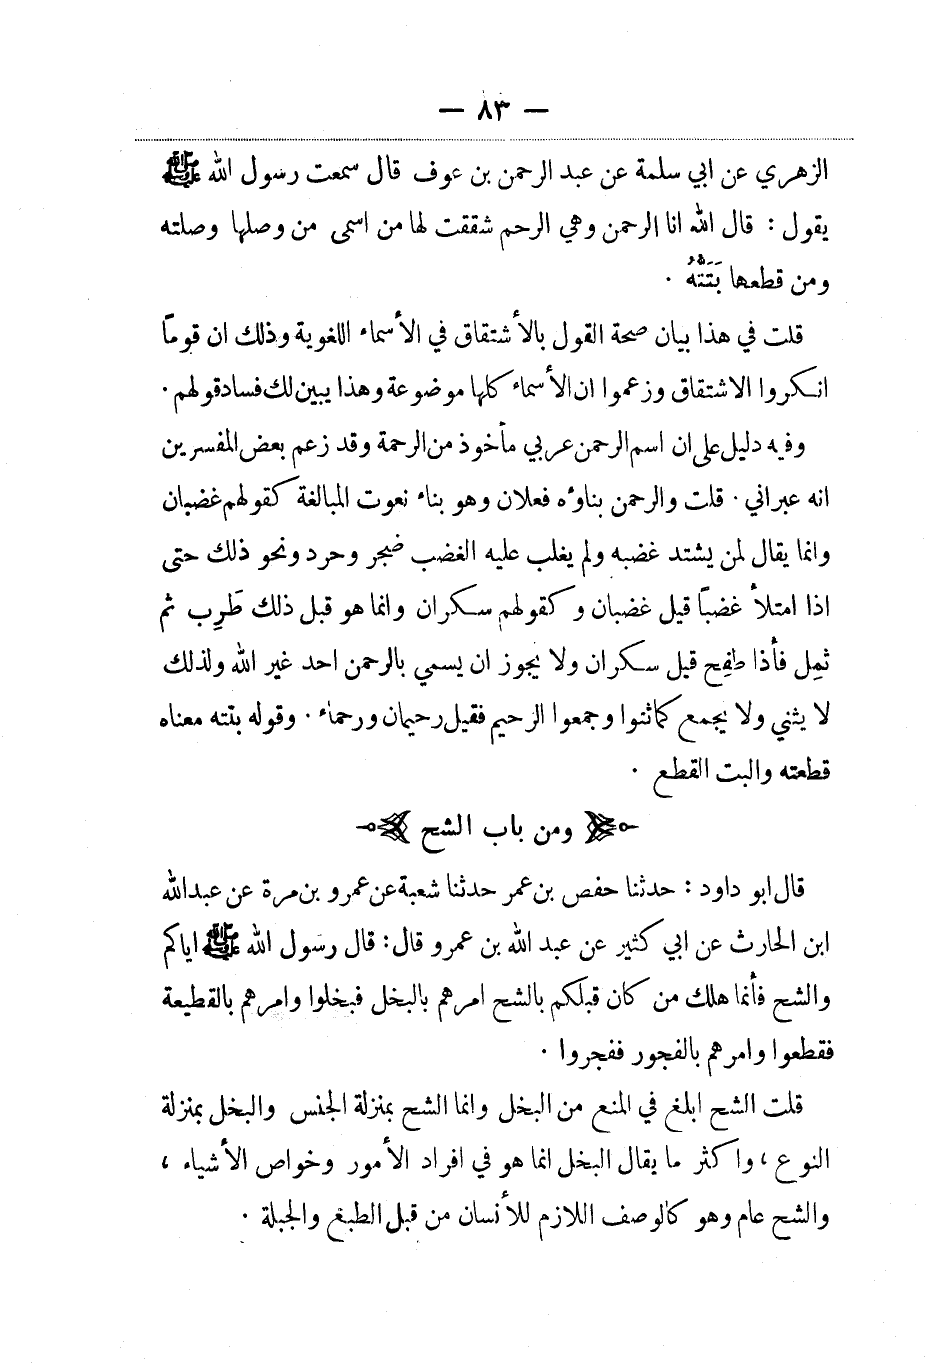 — ٨٣ —
الزهري عن ابي سلمة عن عبد الرحمن بن عوف قال سمعت رسول الله ﷺ
يقول : قال الله انا الرحمن وهي الرحم شققت لها من اسمى من وصلها وصلته
ومن قطعها بَتَتُّهُ ٠
قلت في هذا بيان صحة القول بالأشتقاق في الأسماء اللغوية وذلك ان قوماً
انكروا الاشتقاق وزعموا ان الأسماء كلها موضوعة وهذا يبين لك فساد قولهم ٠
وفيه دليل على ان اسم الرحمن عربي مأخوذ من الرحمة وقد زعم بعض المفسرين
انه عبراني ٠ قلت والرحمن بناؤه فعلان وهو بناء نعوت المبالغة كقولهم غضبان
وانما يقال لمن يشتد غضبه ولم يغلب عليه الغضب ضجر وحرد ونحو ذلك حتى
اذا امتلأ غضباً قيل غضبان وكقولهم سكران وانما هو قبل ذلك طَرِب ثم
ثمِل فأذا طفِح قيل سكران ولا يجوز ان يسمي بالرحمن احد غير الله ولذلك
لا يثني ولا يجمع كما ثنوا وجمعوا الرحيم فقيل رحيمان ورحماء ٠ وقوله بتته معناه
قطعته والبت القطع ٠
ومن باب الشح
قال ابو داود : حدثنا حفص بن عمر حدثنا شعبة عن عمرو بن مرة عن عبد الله
ابن الحارث عن ابي كثير عن عبد الله بن عمرو قال : قال رسول الله ﷺ اياكم
والشح فأنما هلك من كان قبلكم بالشح امرهم بالبخل فبخلوا وامرهم بالقطيعة
فقطعوا وامرهم بالفجور ففجروا ٠
قلت الشح ابلغ في المنع من البخل وانما الشح بمنزلة الجنس والبخل بمنزلة
النوع ، واكثر ما يقال البخل انما هو في افراد الأمور وخواص الأشياء ،
والشح عام وهو كالوصف اللازم للأنسان من قبل الطبغ والجبلة ٠